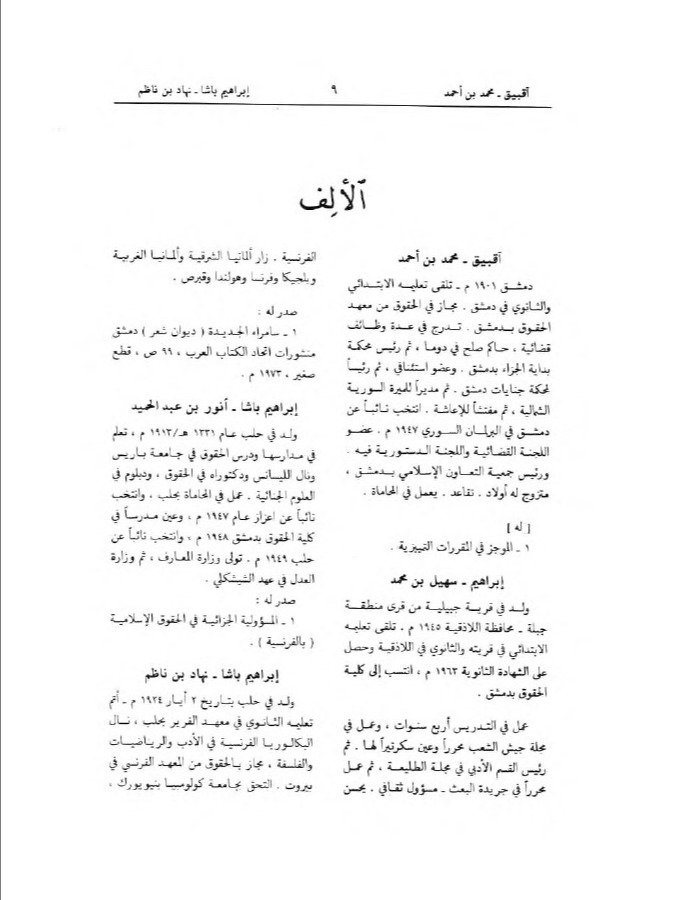 آقبيق ـ محمد بن أحمد
٩
إبراهيم باشا ـ نهاد بن ناظم
الألِف
آقبيق ـ محمد بن أحمد
دمشق ١٩٠١ م ـ تلقى تعليمه الابتدائي
والثانوي في دمشق . مجاز في الحقوق من معهد
الحقوق بدمشق . تدرج في عدة وظائف
قضائية ، حاكم صلح في دوما ، ثم رئيس محكمة
بداية الجزاء بدمشق . وعضو استئنافي ، ثم رئيساً
لمحكمة جنايات دمشق . ثم مديراً للميرة السورية
الشمالية ، ثم مفتشاً للإعاشة . انتخب نائباً عن
دمشق في البرلمان السوري ١٩٤٧ م . عضو
اللجنة القضائية واللجنة الدستورية فيه .
ورئيس جمعية التعاون الإسلامي بدمشق ،
متزوج له أولاد . تقاعد . يعمل في المحاماة .
[ له ]
١ ـ الموجز في المقررات التمييزية .
إبراهيم ـ سهيل بن محمد
ولد في قرية جبيلية من قرى منطقة
جبلة ـ محافظة اللاذقية ١٩٤٥ م . تلقى تعليمه
الابتدائي في قريته والثانوي في اللاذقية وحصل
على الشهادة الثانوية ١٩٦٣ م ، انتسب إلى كلية
الحقوق بدمشق .
عمل في التدريس أربع سنوات ، وعمل في
مجلة جيش الشعب محرراً وعين سكرتيراً لها . ثم
رئيس القسم الأدبي في مجلة الطليعة ، ثم عمل
محرراً في جريدة البعث ـ مسؤول ثقافي . يحسن
الفرنسية . زار ألمانيا الشرقية وألمانيا الغربية
وبلجيكا وفرنسا وهولندا وقبرص .
صدر له :
١ ـ سامراء الجديدة ( ديوان شعر ) دمشق
منشورات اتحاد الكتاب العرب ، ٩٩ ص ، قطع
صغير ، ١٩٧٣ م .
إبراهيم باشا ـ أنور بن عبد الحميد
ولد في حلب عام ١٣٣١ هـ/١٩١٣ م ، تعلم
في مدارسها ودرس الحقوق في جامعة باريس
ونال الليسانس ودكتوراه في الحقوق ، ودبلوم في
العلوم الجنائية . عمل في المحاماة بحلب ، وانتخب
نائباً عن اعزاز عام ١٩٤٧ م ، وعين مدرساً في
كلية الحقوق بدمشق ١٩٤٨ م ، وانتخب نائباً عن
حلب ١٩٤٩ م . تولى وزارة المعارف ، ثم وزارة
العدل في عهد الشيشكلي .
صدر له :
١ ـ المسؤولية الجزائية في الحقوق الإسلامية
( بالفرنسية ) .
إبراهيم باشا ـ نهاد بن ناظم
ولد في حلب بتاريخ ٢ أيار ١٩٢٤ م ـ أتم
تعليمه الثانوي في معهد الفرير بحلب ، نال
البكالوريا الفرنسية في الأدب والرياضيات
والفلسفة ، مجاز بالحقوق من المعهد الفرنسي في
بيروت . التحق بجامعة كولومبيا بنيويورك ،